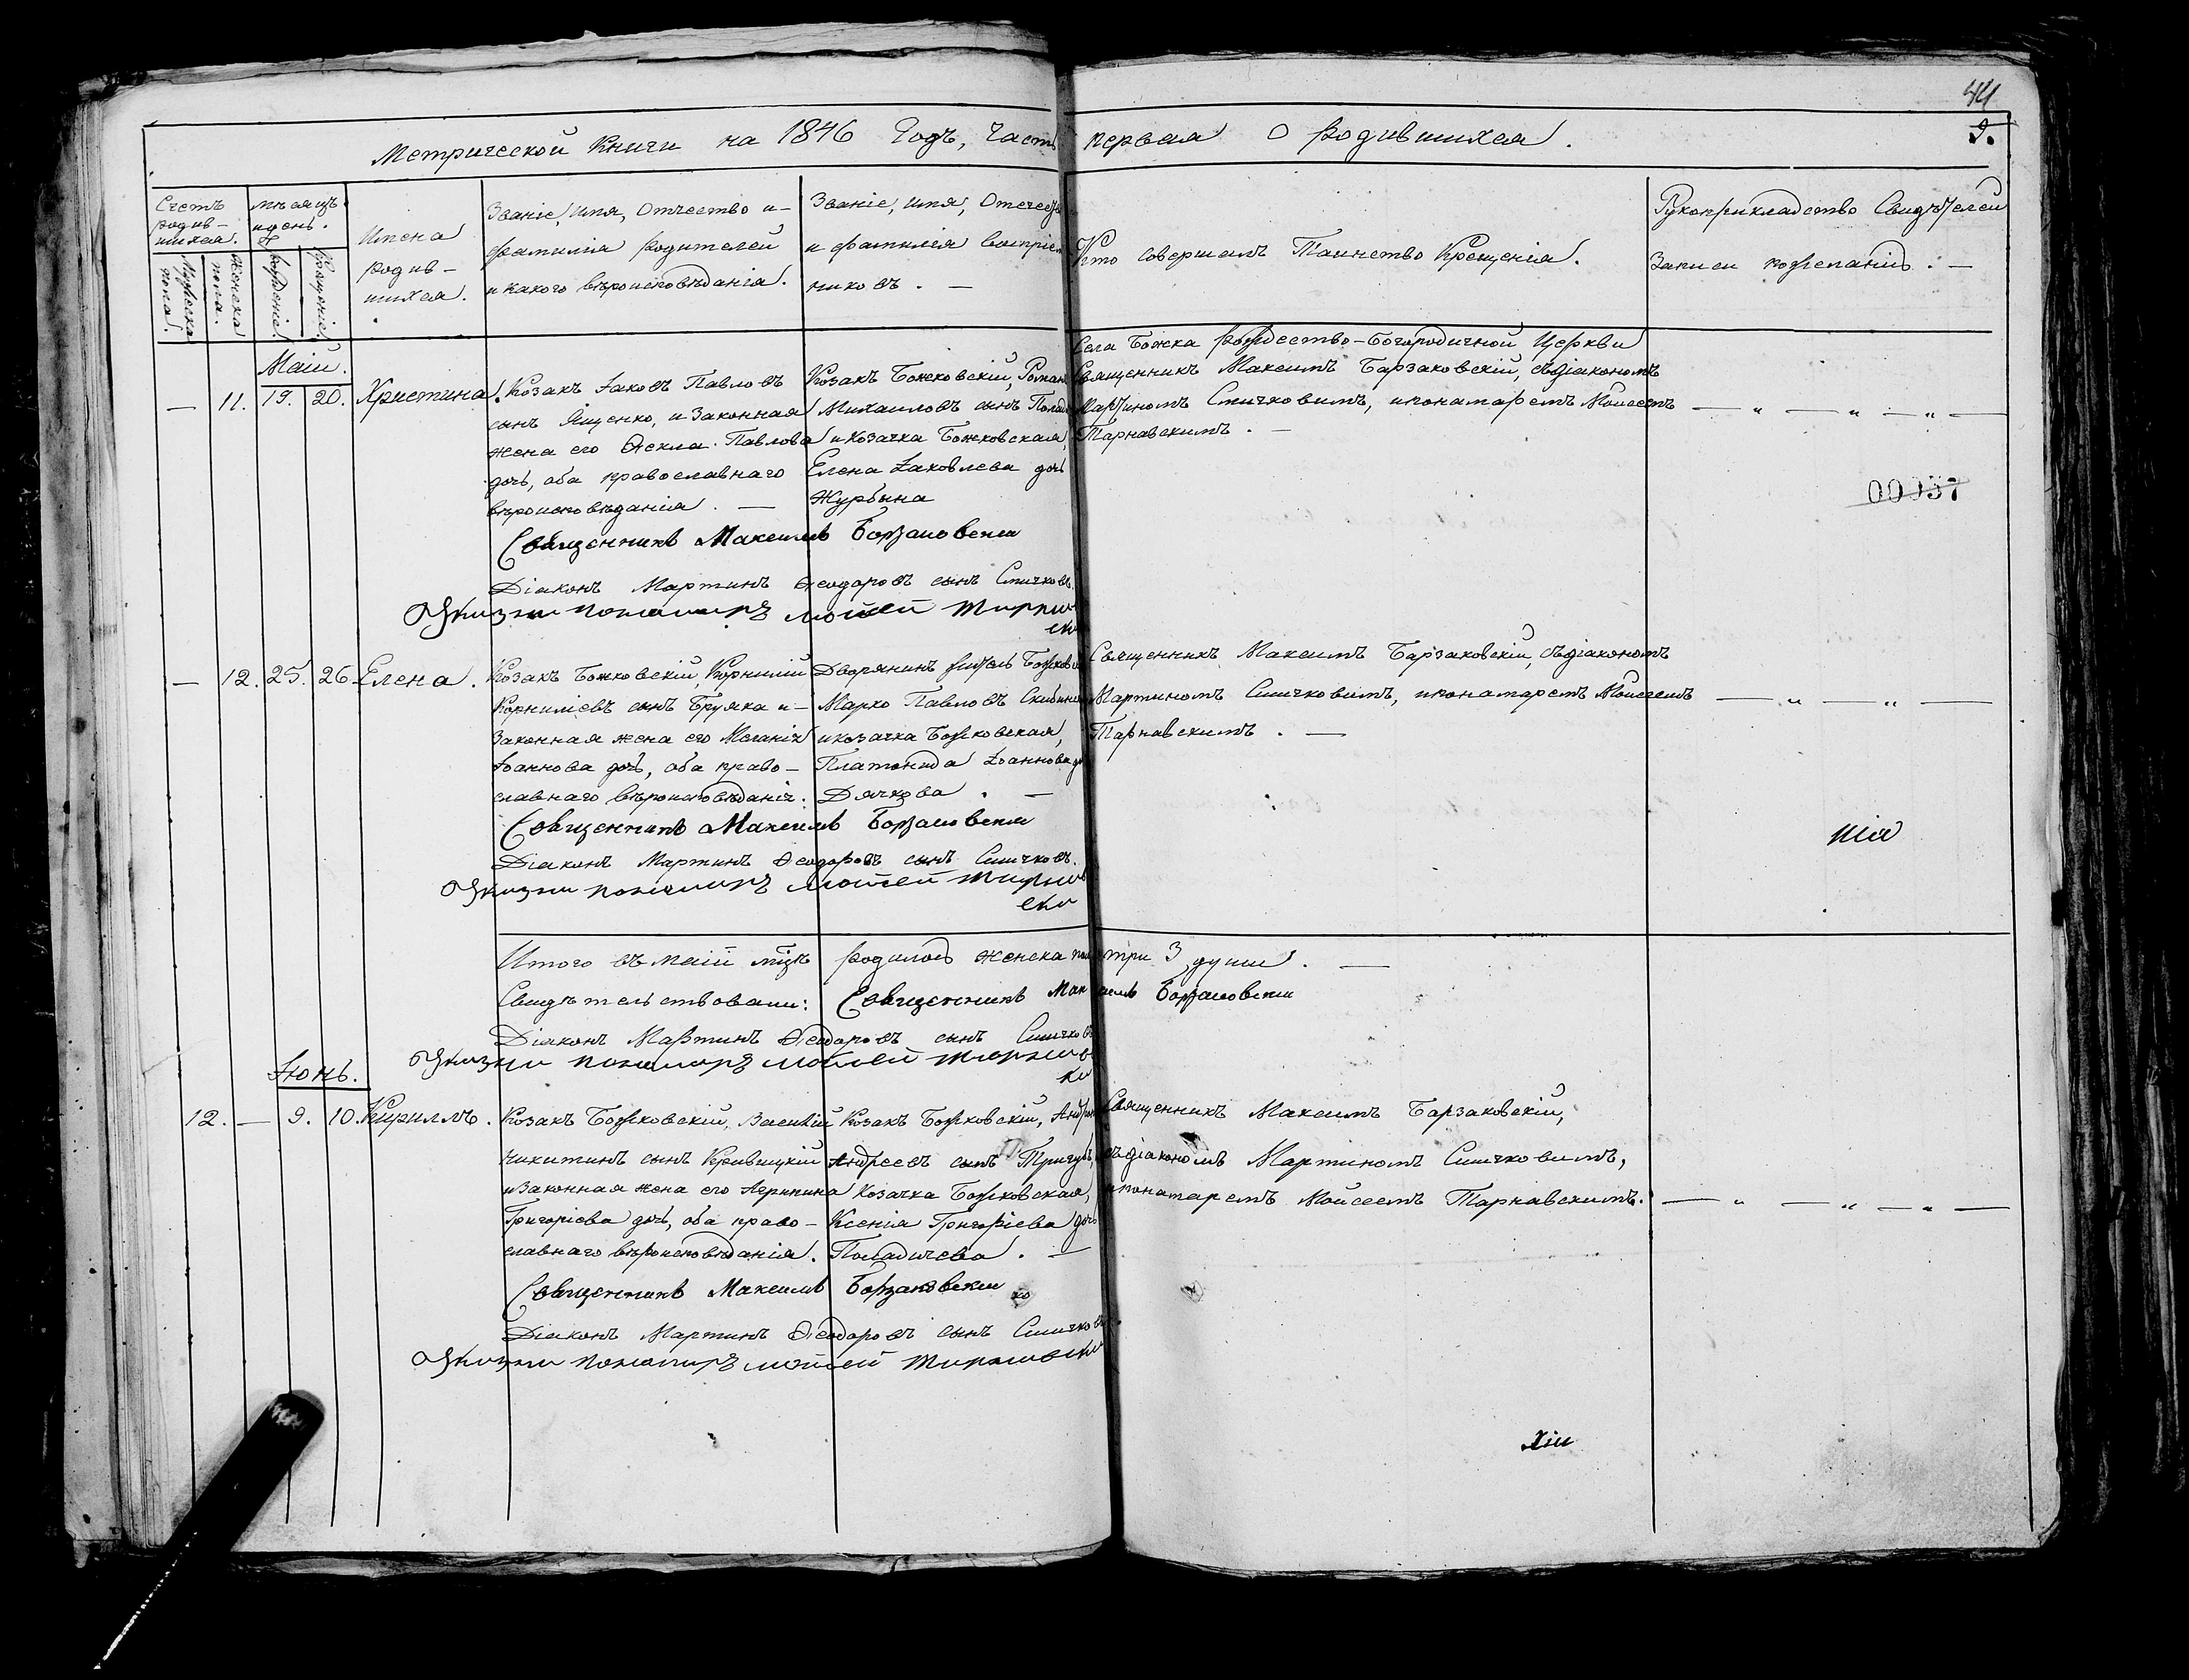 44
Метрической Книги на 1846 Годъ, Часть первая О родившихся.
9.
Счетъ родив-шихся.
Мужеска пола.
Женска пола.
мѣсяцъ и день.
рожденіе.
Крещеніе.
Имена
родив-
шихся.
Званіе, имя, Отчество и-
фамилія родителей
и какого вѣроисповѣданія.
Званіе, имя, Отечест
и фамилія воспріем
никовъ. —
Кто совершалъ Таинство Крещенія.
Рукоприкладство Свидѣтелей
Записи по желанію. —
Маій.
— 11. 19. 20. Христина.
Козакъ Іаковъ Павловъ
сынъ Ященко, и Законная
жена его Ѳекла Павлова
дочь, оба православнаго
вѣроисповѣданія. —
Козакъ Божковскій, Роман
Михаиловъ сынъ
и Козачка Божковская,
Елена Іаковлева доч
Журбына
Села Божка Рождество-Богородичной Церкви
Священникъ Максимъ Барзаковскій, съ діакономъ
Мартиномъ Смичковимъ, и понамаремъ Моисеемъ
Тарнавскимъ. —
00057
Священникъ Максимъ Борзаковский
Діаконъ Мартинъ Ѳеодоровъ сынъ Смичковъ.
понамаръ Мойсей Тарнав
ски
— 12. 25. 26. Елена.
Козакъ Божковскій, Корнилій
Корниліевъ сынъ Бруяка и-
Законная жена его Меланія
Іоаннова дочь, оба право-
славнаго вѣроисповѣданія.
Дворянинъ житель Божков
Марко Павловъ
и козачка Божковская,
Платонида Іоаннова д
Дячкова. —
Священникъ Максимъ Барзаковскій, съ діакономъ
Мартиномъ Смичковимъ, и понамаремъ Моисеемъ
Тарнавскимъ. —
Священникъ Максимъ Борзаковский
нія
Діаконъ Мартинъ Ѳеодоровъ сынъ Смичковъ.
понамаръ Мойсей Тарнав
ски
Итого въ маій мцѣ родилось женска пола три 3 души. —
Свидѣтельствовали: Священникъ Максимъ Борзаковский
Діаконъ Мартинъ Ѳеодоровъ сынъ Смичковъ
понамаръ Мойсей Тарнавс
ки
Іюнь.
12. — 9. 10. Кириллъ.
Козакъ Божковскій, Василій
Никитинъ сынъ Кривицкій
и Законная жена его Агрипина
Григоріева дочь, оба право-
славнаго вѣроисповѣданія.
Козакъ Божковскій, Андрей
Андреевъ сынъ Тригубъ,
Козачка Божковская,
Ксенія Григоріева доч
Поладичева. —
Священникъ Максимъ Барзаковскій,
съ діакономъ Мартиномъ Смичковимъ,
и понамаремъ Моисеемъ Тарнавскимъ.
Священникъ Максимъ Борзаковский
Діаконъ Мартинъ Ѳеодоровъ сынъ Смичковъ.
понамаръ Мойсей Тарнавски
хіи